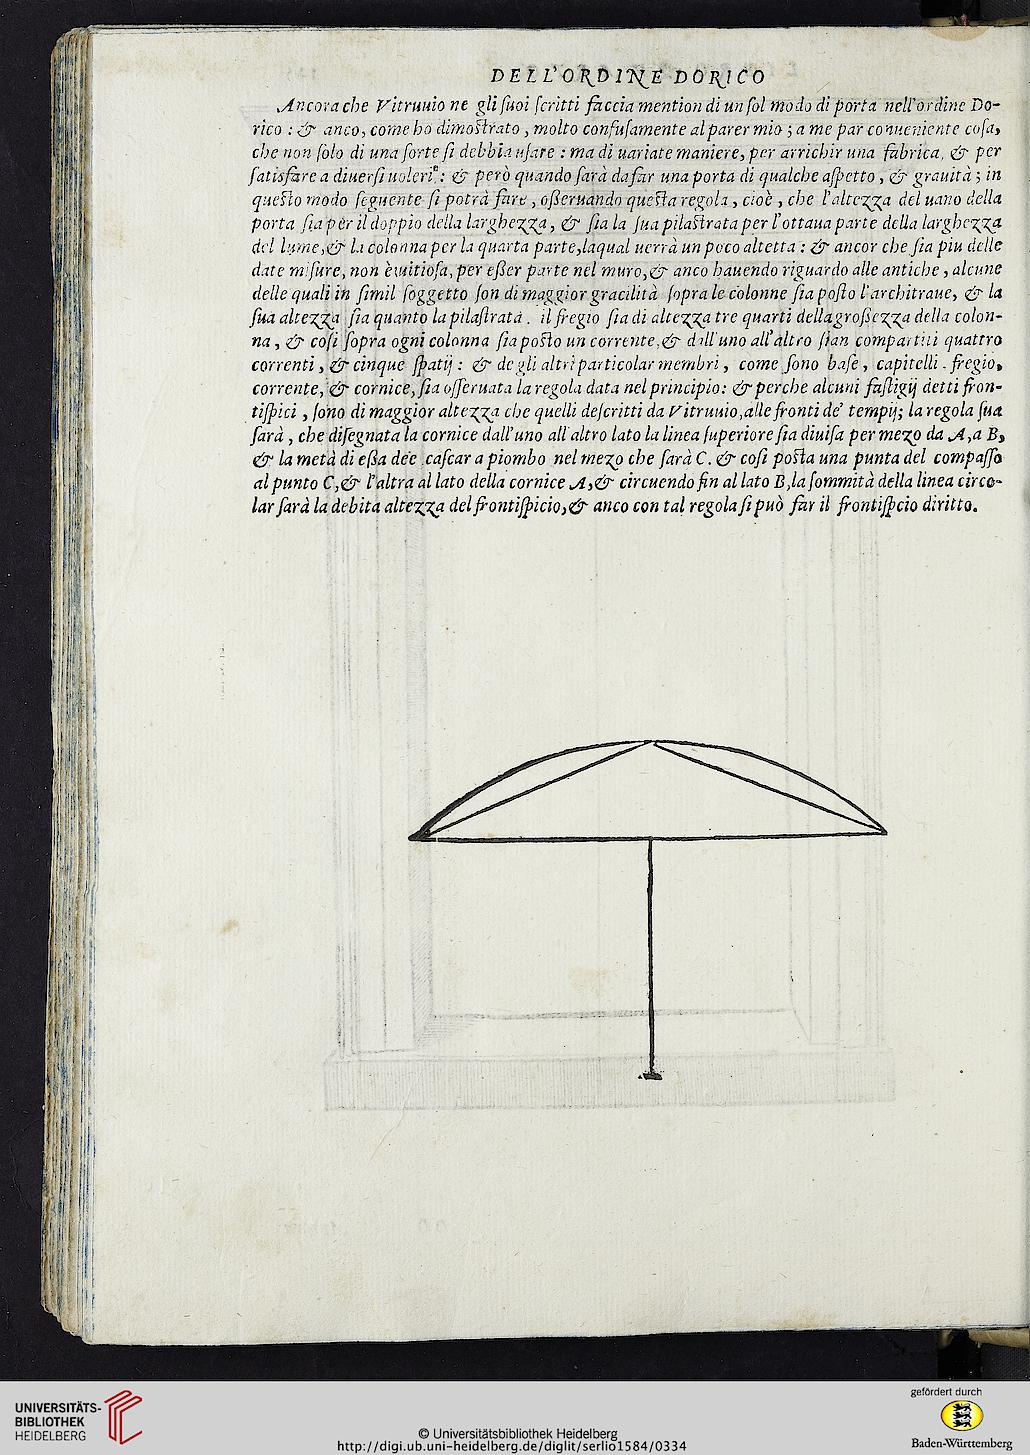 DELL'ORDINE DORICO
Ancora che Vitruuio ne gli ſuoi ſcritti faccia mention di un ſol modo di porta nell'ordine Do-
rico : & anco, come ho dimoſtrato , molto confuſamente al parer mio ; a me par conueniente coſa,
che non ſolo di una ſorte ſi debbia uſare : ma di uariate maniere, per arrichir una fabrica, & per
ſatisfare a diuerſi uoleri : & però quando ſarà da far una porta di qualche aſpetto , & grauità ; in
queſto modo ſeguente ſi potrà fare , oſſeruando queſta regola , cioè , che l'altezza del uano della
porta ſia per il doppio della larghezza , & ſia la ſua pilaſtrata per l'ottaua parte della larghezza
del lume, & la colonna per la quarta parte, laqual uerrà un poco altetta : & ancor che ſia piu delle
date miſure, non è uitioſa, per eſſer parte nel muro, & anco hauendo riguardo alle antiche , alcune
delle quali in ſimil ſoggetto ſon di maggior gracilità ſopra le colonne ſia poſto l'architraue, & la
ſua altezza ſia quanto la pilaſtrata . il fregio ſia di altezza tre quarti della groſſezza della colon-
na , & coſi ſopra ogni colonna ſia poſto un corrente, & dall'uno all'altro ſian compartiti quattro
correnti , & cinque ſpatij : & de gli altri particolar membri , come ſono baſe , capitelli . fregio,
corrente, & cornice, ſia oſſeruata la regola data nel principio: & perche alcuni faſtigij detti fron-
tiſpici , ſono di maggior altezza che quelli deſcritti da Vitruuio, alle fronti de' tempij; la regola ſua
ſarà , che diſegnata la cornice dall'uno all'altro lato la linea ſuperiore ſia diuiſa per mezo da A, a B,
& la metà di eſſa dee caſcar a piombo nel mezo che ſarà C. & coſi poſta una punta del compaſſo
al punto C, & l'altra al lato della cornice A, & circuendo fin al lato B, la ſommità della linea circo-
lar ſarà la debita altezza del frontiſpicio, & anco con tal regola ſi può far il frontiſpcio diritto.
UNIVERSITÄTS-
BIBLIOTHEK
HEIDELBERG
© Universitätsbibliothek Heidelberg
http://digi.ub.uni-heidelberg.de/diglit/serlio1584/0334
gefördert durch
Baden-Württemberg